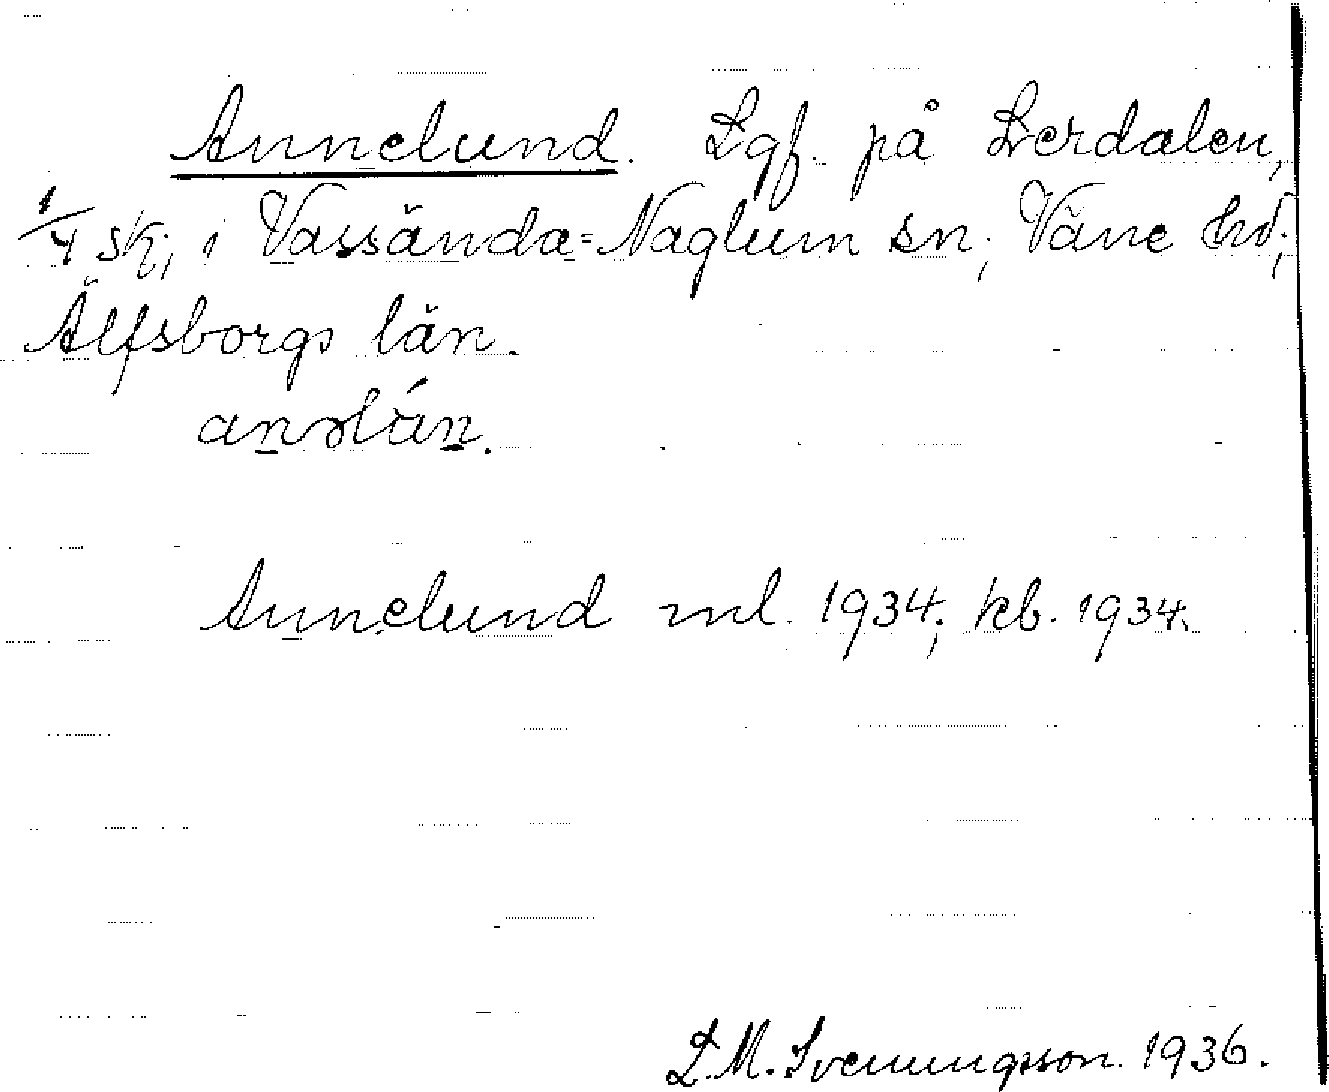 Annelund. Lgf. på Lerdalen,
1/4 sk, i Vassända-Naglum sn, Väne hd,
Älfsborgs län.
Annelund ml. 1934; kb. 1934.
L.M. Svenungsson. 1936.